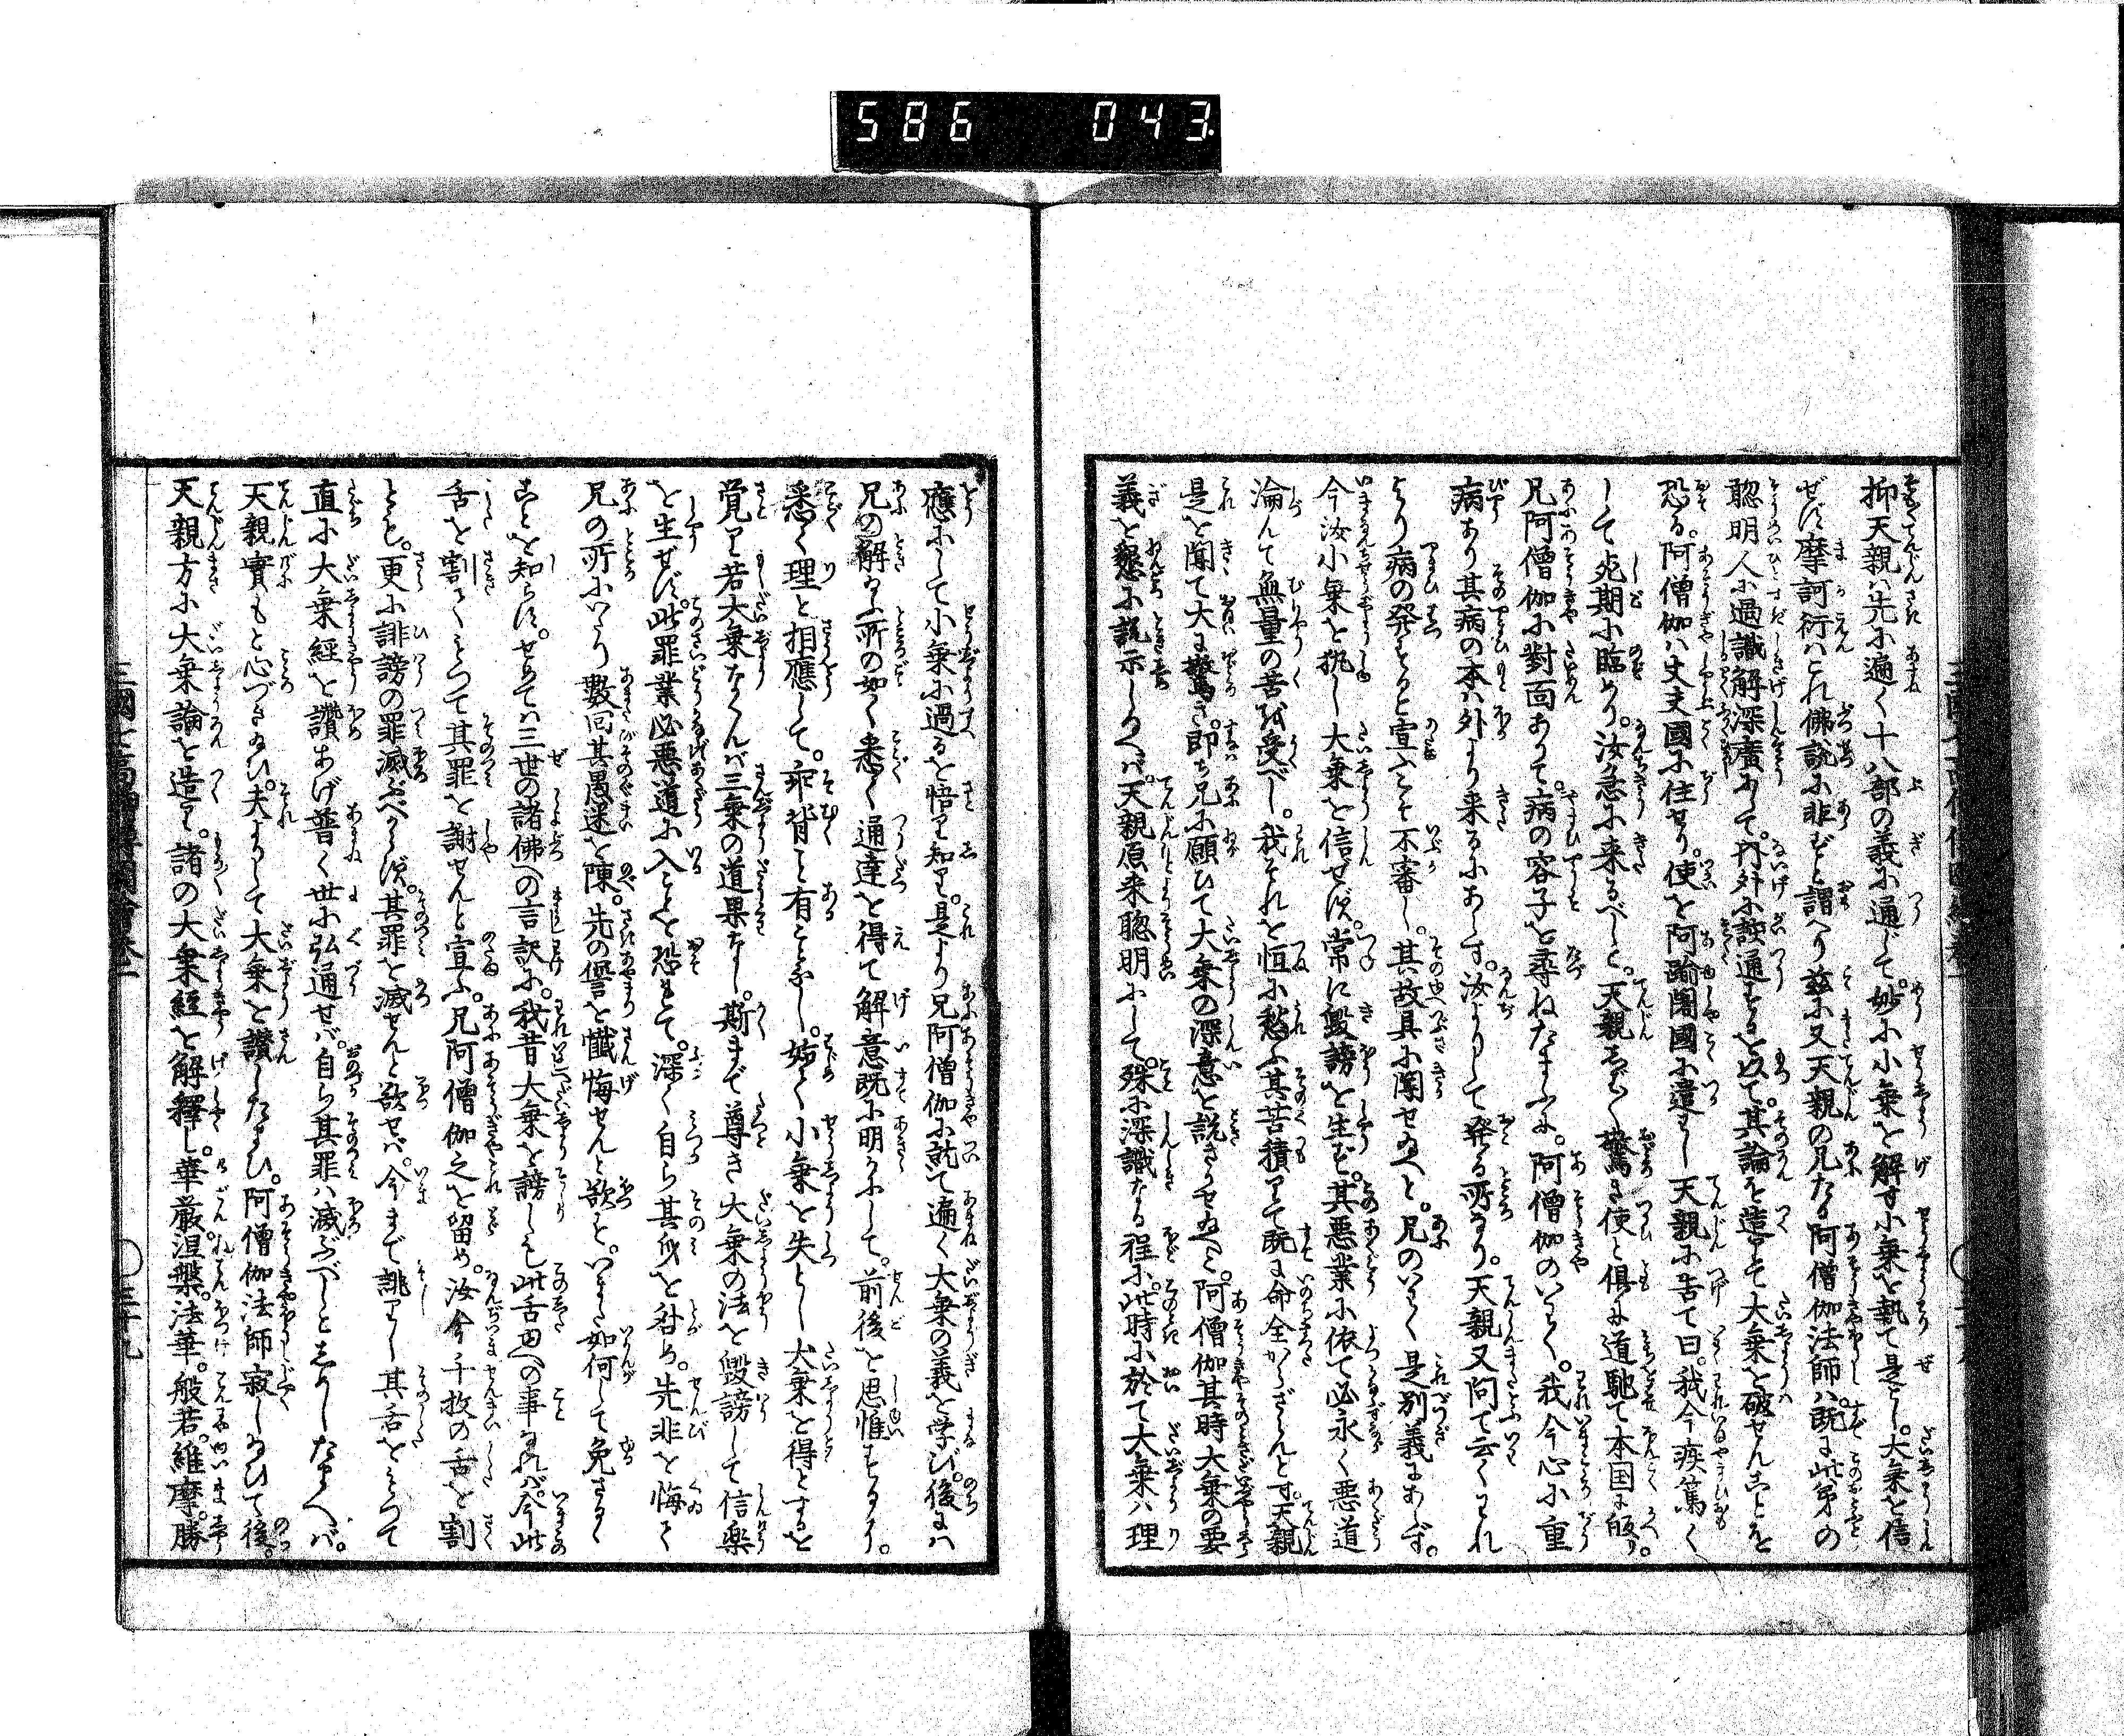 586 043
抑天親ハ先に遍く十八部の義に通じて。妙に小乗を解す小乗を執て是とし。大乗を信
ぜず。摩訶衍ハこれ佛説に非ずと謂へり茲に又天親の兄たる阿僧伽法師ハ。既に此弟の
聡明人に過識解深廣にして。内外に該通するを以て。其論を造して大乗を破せんことを
恐る。阿僧伽ハ丈夫國に住せり。使を阿踰闍國に遣し天親に告て曰。我今疾篤く
して死期に臨めり。汝急に来るべしと。天親しバらく驚き使と倶に道馳て本国に皈り。
兄阿僧伽に對面ありて。病の容子を尋ねたまふに。阿僧伽のいはく。我今心に重
病あり其病の本ハ外より来るにあらず。汝よりして発る所なり。天親又問て云くわれ
より病の発するを宣ふこと不審し。其故具に聞せ給へと。兄のいはく是別義にあらず。
今汝小乗を執し大乗を信ぜず。常に毀謗を生ず。其悪業に依て必永く悪道
淪んて無量の苦を受べし。我それを恒に愁へ其苦積りて既に命全からざらんとす。天親
是を聞て大に驚き。即ち兄に願ひて大乗の深意を説きかせ給へと。阿僧伽其時大乗の要
義を懇に説示しかへば。天親原来聡明にして。殊に深識なる程に。此時に於て大乗ハ理
應にして小乗に過るを悟り知り。是より兄阿僧伽に就て遍く大乗の義を学び。後にハ
兄の解る所の如く悉く通達を得て解意既に明かにして。前後を思惟するに。
悉く理と相應して。乖背こと有ことなし。始て小乗を失とし大乗を得とすると
覚り若大乗なくんバ三乗の道果なし。斯まで尊き大乗の法を毀謗して信楽
を生ぜず。此罪業必悪道に入ことを恐れて。深く自ら其身を咎め。先非を悔て
兄の所にいたり數回其愚迷を陳。先の愆を懺悔せんと欲と。いまだ如何して免さるる
ことを知らず。せめてハ三世の諸佛への言訳に。我昔大乗を謗しも此舌由への事なれバ。今此
舌を割てもつて其罪を謝せんと宣ふ。兄阿僧伽之を留め。汝今千枚の舌を割
とも。更に誹謗の罪滅ぶべからず。其罪を滅せんと欲せバ。今まで誹りし其舌をもつて
直に大乗経を讃あげ普く世に弘通せバ。自ら其罪ハ滅ぶべしとをしへたまへバ。
天親實もと心づき給ひ。夫よりして大乗を讃したまひ。阿僧伽法師寂し給ひて後。
天親方に大乗論を造り。諸の大乗経を解釋し。華厳。涅槃。法華。般若。維摩。勝